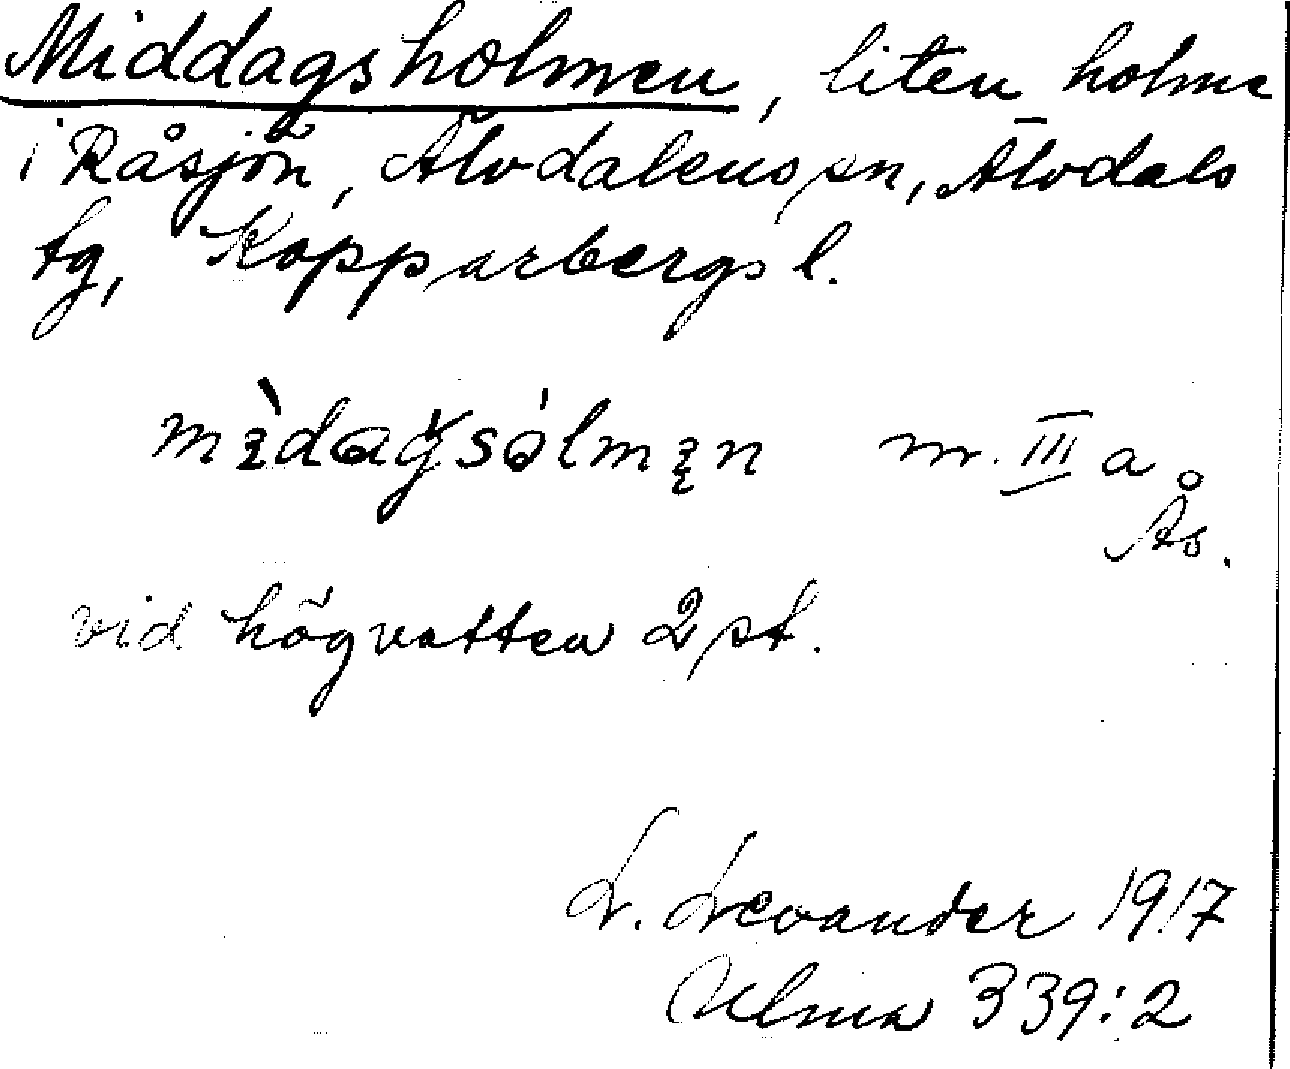 Middagsholmen, liten holme
i Råsjön, Älvdalens sn, Älvdals
tg, Kopparbergs l.
m. III a
Ås.
vid högvatten 2 st.
L. Levander 1917
Ulma 339:2